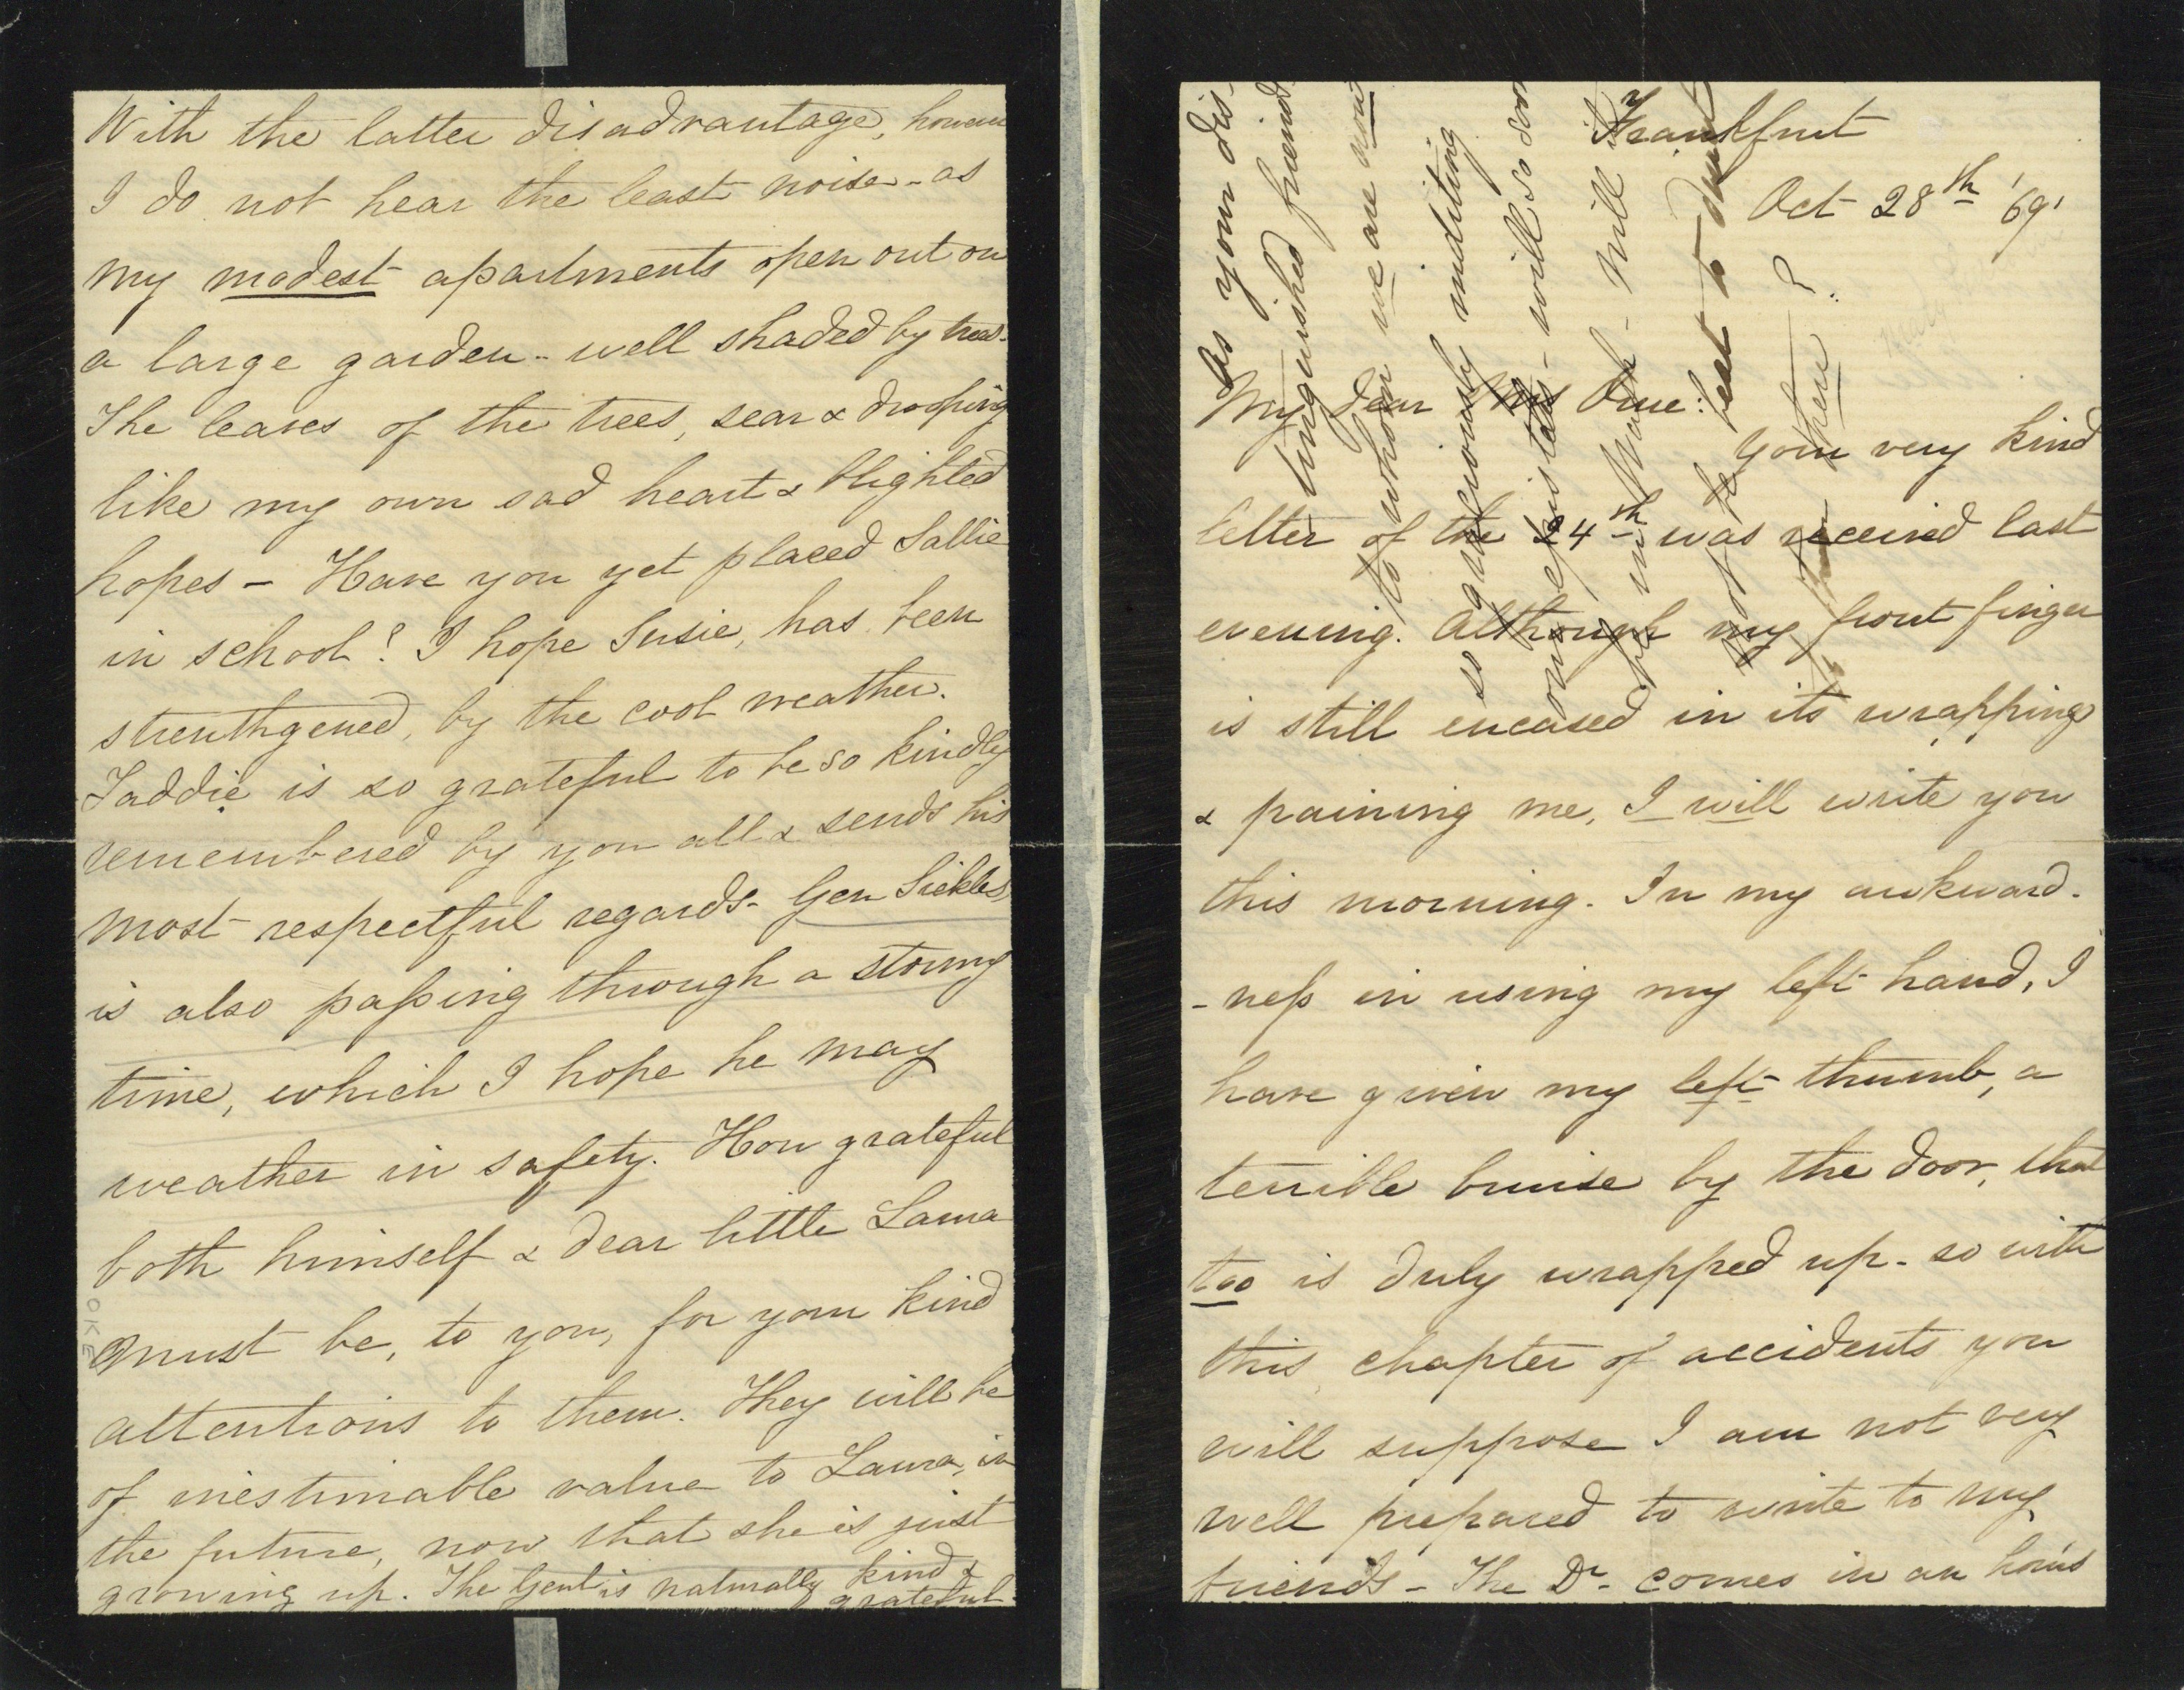 With the latter disadvantage, however
I do not hear the least noise - as
my modest apartments open out on
a large garden - well shaded by trees.
The leaves of the trees, sear & drooping
like my own sad heart & blighted
hopes - Have you yet placed Sallie
in school? I hope Susie, has been
strenthgened, by the cool weather.
Taddie is so grateful to be so kindly
remembered by you all & sends his
most respectful regards - Gen Sickles,
is also passing through a stormy
time, which I hope he may
weather in safety. How grateful
both himself & dear little Laura
must be, to you, for your kind
attentions to them. They will be
of inestimable value to Laura, in
the future, now that she is just
growing up. The Genl is naturally kind &
grateful.
Frankfurt
Oct 28th '69'
My dear Mrs Orne:
Your very kind
letter of the 24th was received last
evening. Although my front finger
is still encased in its wrapping
& paining me, I will write you
this morning. In my awkward-
-ness in using my left hand, I
have given my left thumb, a
terrible bruise by the door, that
too is duly wrapped up - so with
this, chapter of accidents you
will suppose I am not very
well prepared to write to my
friends - The Dr - comes in an hour's
As your dis-
tinguished friends
to whom we are now
so graciously inditing
our epistles - will so soon
be in March - will it
not be best to
then?